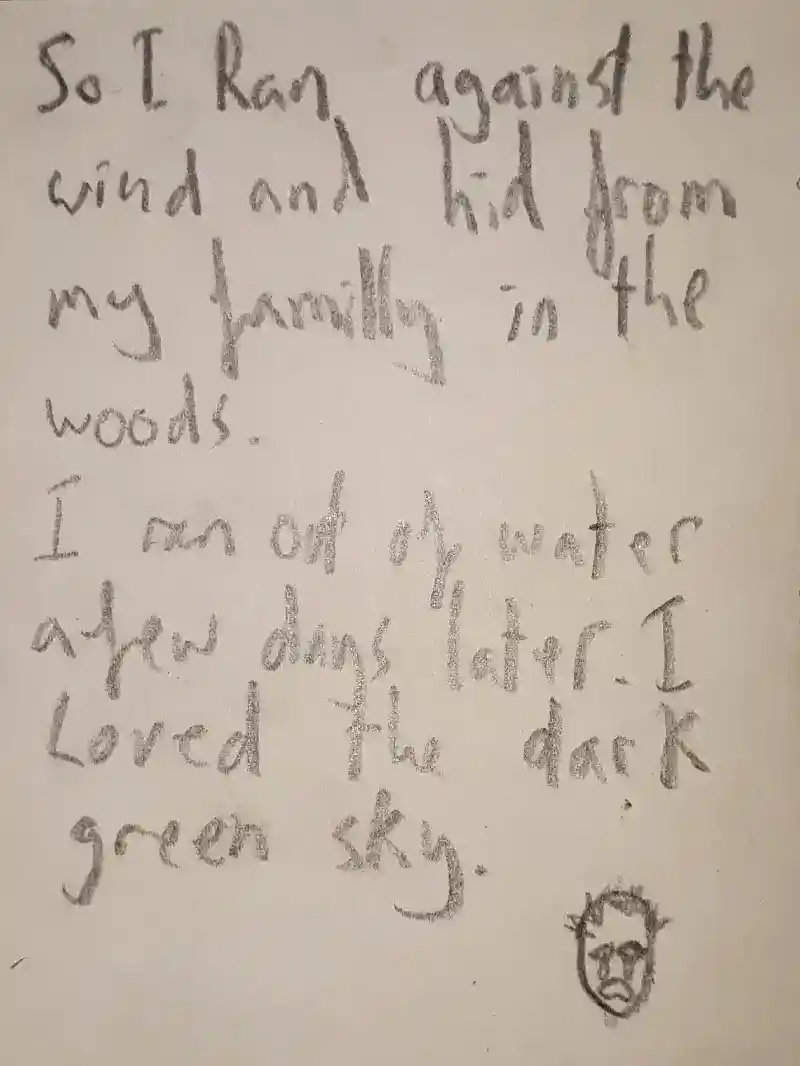 So I Ran against the
wind and hid from
my familly in the
woods.
I ran out of water
a few days later. I
Loved the dark
green sky.